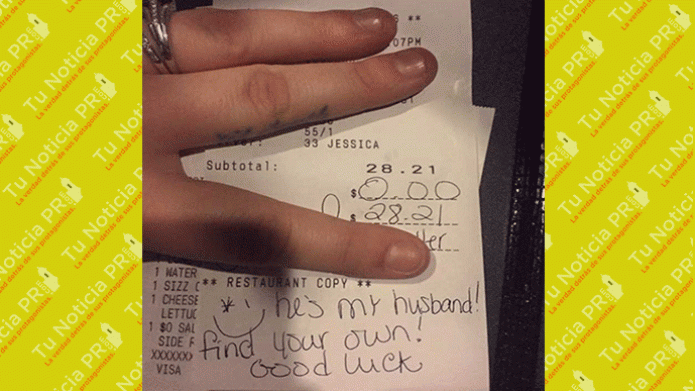 **
:07PM
55/1
33 JESSICA
Subtotal: 28.21
$ 0.00
$ 28.21
1 WATER
** RESTAURANT COPY **
1 SIZZ
1 CHEESE
LETTUC
1 $0 SAL
SIDE
XXXXXX
VISA
he's my husband!
find your own!
Good luck
Tu Noticia PR
La verdad detrás de sus protagonistas.